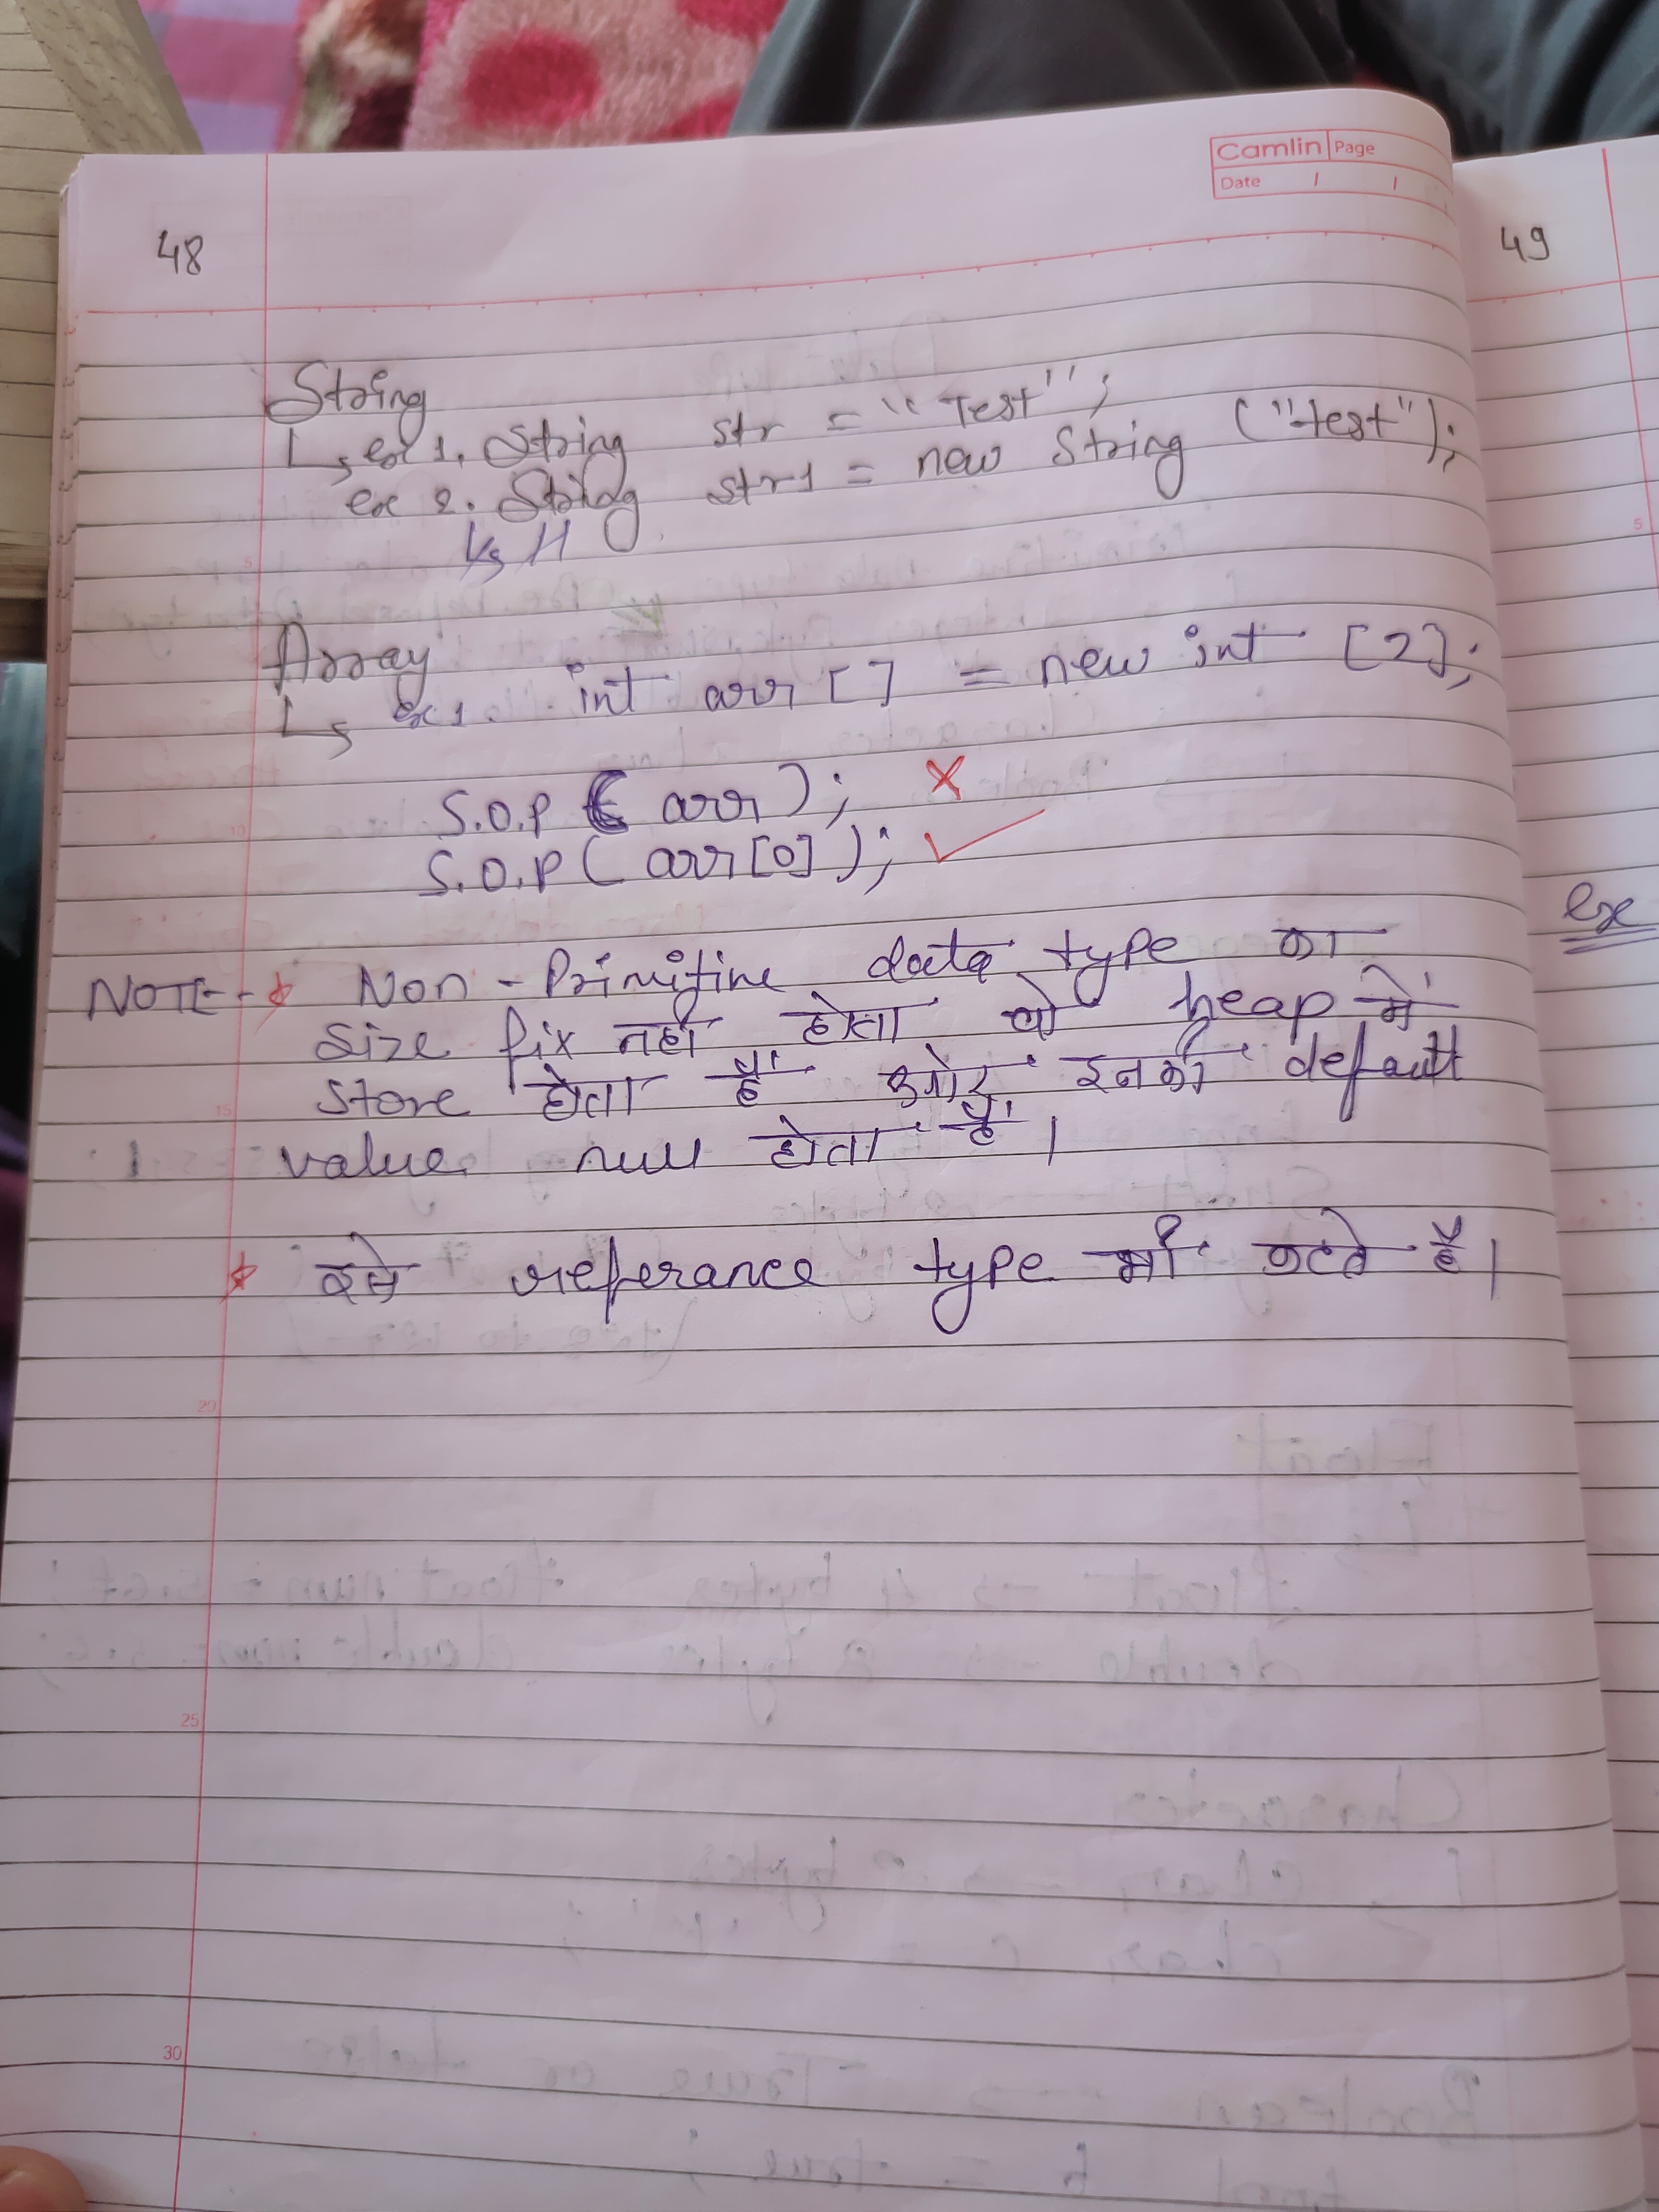 Camlin Page
Date / /
48
49
String
↳ ex 1. String str = "Test";
ex 2. String str1 = new String ("test");
Array
↳ ex 1. int arr [] = new int [2];
S.O.P ( arr ); ✗
S.O.P ( arr[0] ); ✓
ex
NOTE - * Non - Primitive data type का
size fix नहीं होता वो heap में
store होता हैं और इनकी default
value null होता हैं।
* इसे referance type भी कहते हैं।
5
10
15
20
25
30
5